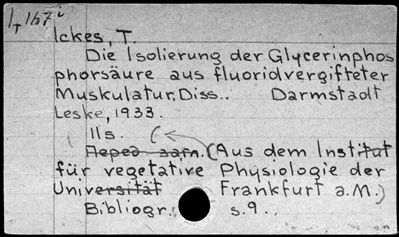 1,167 i
Ickes, T.
Die Isolierung der Glycerinphos
phorsäure aus fluoridvergifteter
Muskulatur. Diss.. Darmstadt
Leske, 1933.
11s.
Перед загл. (Aus dem Institut
für vegetative Physiologie der
Universität Frankfurt a.M.)
Bibliogr.: s.9..